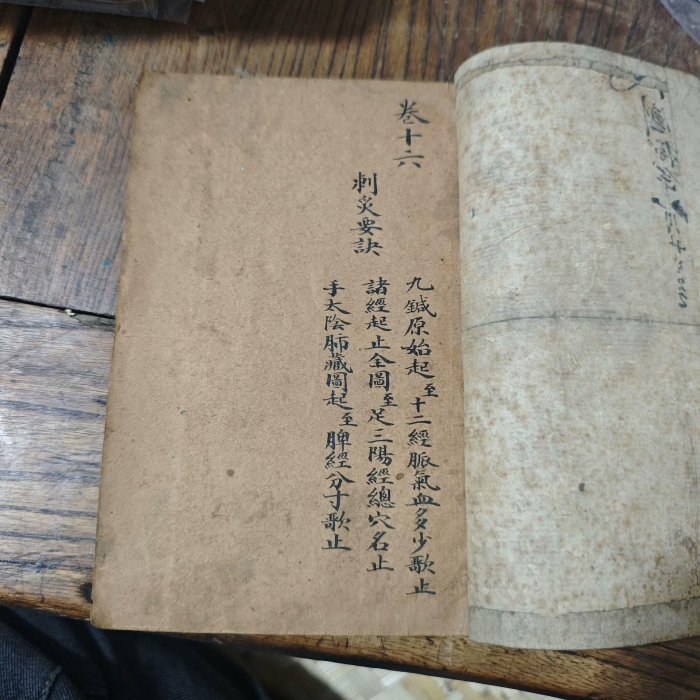 卷十六
刺灸要訣
九鍼原始起至十二經脈氣血多少歌止
諸經起止全圖至足三陽經總穴名止
手太陰肺藏圖起至脾經分寸歌止